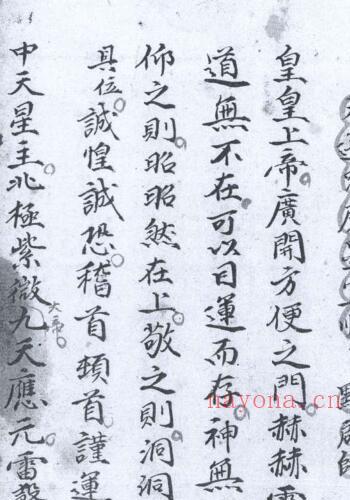 皇皇上帝廣開方便之門赫赫
道無不在可以目運而存神無
仰之則昭昭然在上敬之則洞洞
具位誠惶誠恐稽首頓首謹運
中天星主北極紫微九天應元雷
大帝
nayona.cn